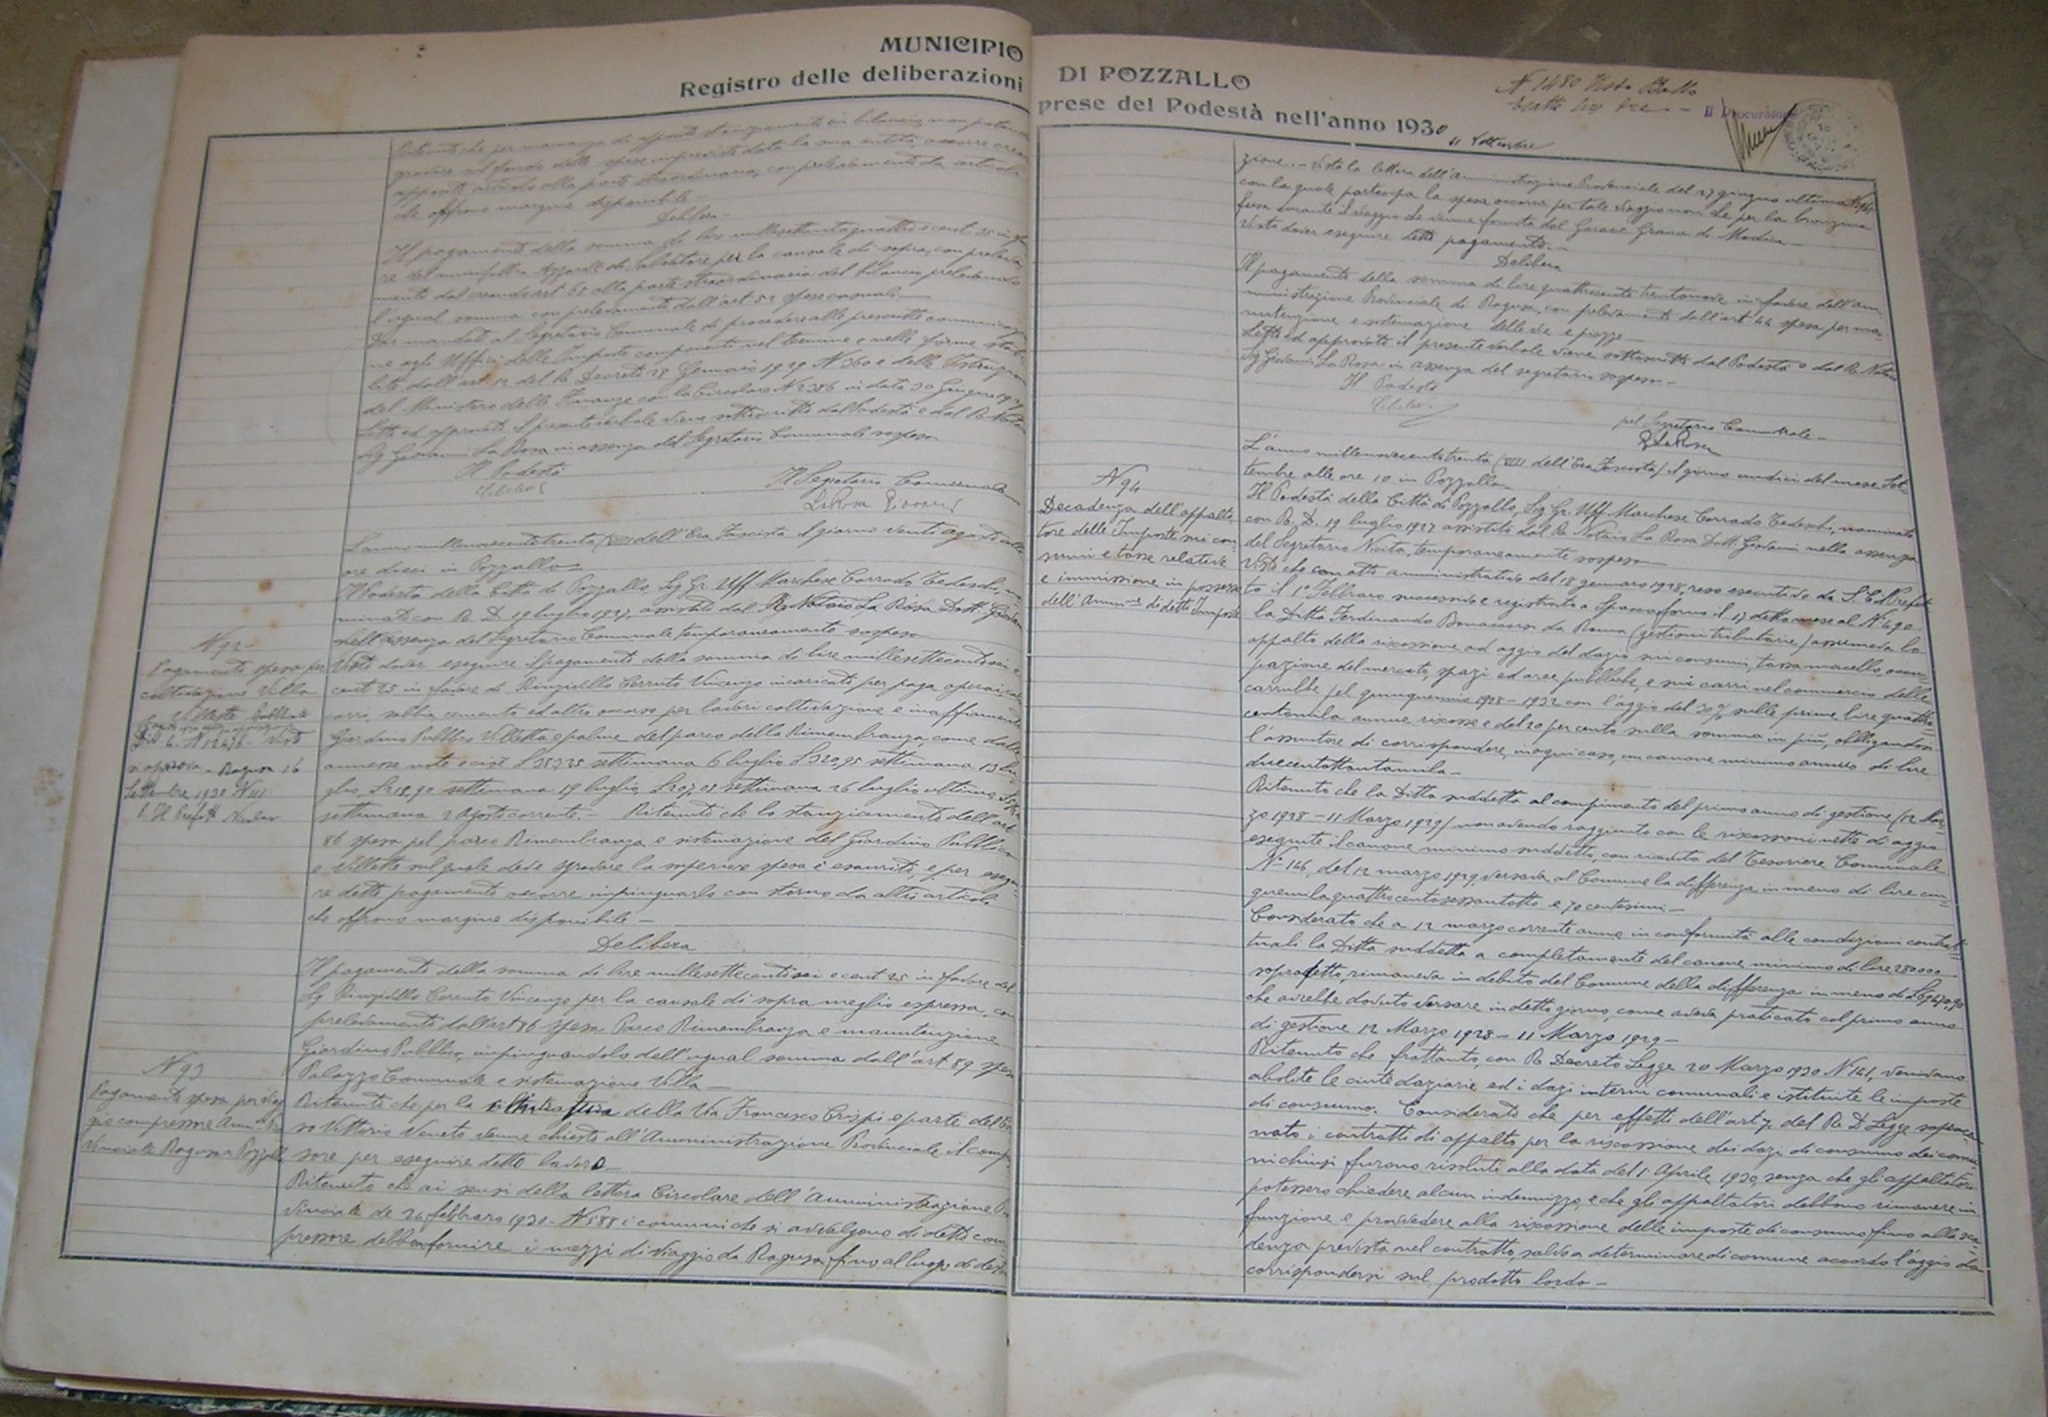 MUNICIPIO
Registro delle deliberazioni
Ritenuto che per mancanza di apposito stanziamento in bilancio, non potendo
gravare sul fondo delle spese impreviste data la sua entità, occorre creare
apposito articolo alla parte straordinaria, con prelevamento da articoli
che offrono margine disponibile -
Delibera -
Il pagamento della somma di lire millesettantaquattro e cent. 35 in favo
re del
Salvatore per la causale di sopra, con preleva
mento dal creando art 68 alla parte straordinaria del bilancio prelevando
l'ugual somma con prelevamento dall'art 52 spese casuali -
Dar mandato al Segretario Comunale di procedere alle prescritte comunicazio
ni agli Uffici delle Imposte competente nel termine e nelle forme stabi
lite dall'art 12 del R. Decreto 28 Gennaio 1929 N 360 e delle Istruzioni
del Ministero delle Finanze con la Circolare N 2386 in data 30 Giugno 1929
Letto ed approvato il presente verbale viene sottoscritto dal Podestà e dal R. Notaio
Sig Giovanni La Rosa in assenza del Segretario Comunale sospeso
Il Podestà
Il Segretario Comunale
La Rosa Giovanni
L'anno millenovecentotrenta (VIII) dell'Era Fascista il giorno venti agosto alle
ore dieci in Pozzallo -
Il Podestà della Città di Pozzallo, Sig Gr. Uff. Marchese Corrado Tedeschi, no
minato con R. D. 19 luglio 1927, assistito dal R. Notaio La Rosa Dott. Giovanni
nell'assenza del Segretario Comunale temporaneamente sospeso
N 92
Pagamento spesa per
coltivazione Villa
e Villetta Pubblica
Div 4. N 12476 - Visto
si approva - Ragusa 16
Settembre 1930 VIII
p. Il Prefetto
Visto dover eseguire il pagamento della somma di lire millesettecentosei e
cent 25 in favore di Rinzivillo Cerruto Vincenzo incaricato per paga operai, ca
carro, sabbia cemento ed altro occorso per lavori coltivazione e inaffiamento
Giardino Pubblico Villetta e palme del parco della Rimembranza, come dalle
annesse note e cioè L 353,25 settimana 6 luglio L 320,95 settimana 13 lu
glio, settimana 19 luglio, settimana 26 luglio ultimo,
settimana 2 agosto corrente. - Ritenuto che lo stanziamento dell'art
86 spesa pel parco Rimembranza e sistemazione del Giardino Pubblico
e Villetta sul quale deve gravare la superiore spesa è esaurito, e per esegui
re detto pagamento occorre impinguarlo con storno da altri articoli
che offrono margine disponibile -
Delibera
Il pagamento della somma di lire millesettecentosei e cent 25 in favore del
Sig Rinzivillo Cerruto Vincenzo per la causale di sopra meglio espressa, con
prelevamento dall'art 86 spesa Parco Rimembranza e manutenzione
Giardino Pubblico, impinguandolo dell'ugual somma dall'art 89 spesa
Palazzo Comunale e sistemazione Villa -
N 93
Pagamento spesa per viag
gio compressore Amm.ne Pro
vinciale Ragusa Pozzallo
Ritenuto che per la della Via Francesco Crispi e parte del Cor
so Vittorio Veneto venne chiesto all'Amministrazione Provinciale il compres
sore per eseguire detto lavoro -
Ritenuto che ai sensi della lettera Circolare dell'Amministrazione Pro
vinciale del 24 febbraio 1930 - N 588 i comuni che si avvalgono di detto com
pressore debbono fornire i mezzi di viaggio da Ragusa fino al luogo di destina
DI POZZALLO
prese del Podestà nell'anno 1930
11 Settembre
N 1480 Visto Bollo
Esatte lire tre -
Il Procuratore
zione. - Vista la lettera dell'Amministrazione Provinciale del 27 giugno ultimo
con la quale partecipa la spesa occorsa per tale viaggio non che per la benzina
fusa durante il viaggio che venne fornita dal Garage Grana di Modica -
Visto dover eseguire detto pagamento -
Delibera
Il pagamento della somma di lire quattrocentotrentanove in favore dell'Am
ministrazione Provinciale di Ragusa, con prelevamento dall'art 44 spesa per ma
nutenzione e sistemazione delle vie e piazze -
Letto ed approvato il presente verbale viene sottoscritto dal Podestà e dal R. Notaio
Sig Giovanni La Rosa in assenza del segretario sospeso -
Il Podestà
pel Segretario Comunale -
G La Rosa
L'anno millenovecentotrenta (VIII dell'Era Fascista) il giorno undici del mese Set
tembre alle ore 10 in Pozzallo -
N 94
Decadenza dell'appalta
tore delle Imposte sui con
sumi e tasse relative
e immissione in possesso
dell'Amm.ne di dette Imposte
Il Podestà della Città di Pozzallo, Sig Gr. Uff. Marchese Corrado Tedeschi, nominato
con R. D. 19 luglio 1927 assistito dal R. Notaio La Rosa Dott. Giovanni nella assenza
del Segretario Nicita, temporaneamente sospeso -
Visto che con atto amministrativo del 18 gennaro 1928, reso esecutivo da S. E. il Prefet
to il 1° Febbraro successivo e registrato a Spaccaforno il 17 detto mese al N° 490
la Ditta Ferdinando Bonacossa da Roma (gestioni tributarie) assumeva lo
appalto della riscossione ad aggio del dazio sui consumi, tassa macello, occu
pazione del mercato, spazi ed aree pubbliche, e sui carri nel commercio delle
carrubbe pel quinquennio 1928 - 1932 con l'aggio del 30% sulle prime lire quattro
centomila annue riscosse e del 20 per cento sulla somma in più, obbligandosi
l'assuntore di corrispondere, in ogni caso, un canone minimo annuo di lire
duecentottantamila -
Ritenuto che la Ditta suddetta al compimento del primo anno di gestione (12 Mar
zo 1928 - 11 Marzo 1929) non avendo raggiunto con le riscossioni nette di aggio
eseguite il canone minimo suddetto, con ricevuta del Tesoriere Comunale
N° 146, del 12 marzo 1929, versava al Comune la differenza in meno di lire cin
quemilaquattrocentosessantotto e 70 centesimi -
Considerato che a 12 marzo corrente anno, in conformità alle condizioni contrat
tuali la Ditta suddetta a completamento del canone minimo di lire 280000
sopradetto, rimaneva in debito del Comune della differenza in meno di
che avrebbe dovuto versare in detto giorno, come aveva praticato col primo anno
di gestione 12 Marzo 1928 - 11 Marzo 1929 -
Ritenuto che frattanto, con R. Decreto Legge 20 Marzo 1930 N° 141, venivano
abolite le cinte daziarie ed i dazi interni comunali e istituite le imposte
di consumo. Considerato che per effetti dell'art 7, del R. D Legge sopracen
nato, i contratti di appalto per la riscossione dei dazi di consumo dei comu
ni chiusi furono risoluti alla data del 1° Aprile 1930, senza che gli appaltatori
potessero chiedere alcun indennizzo, e che gli appaltatori debbono rimanere in
funzione e provvedere alla riscossione delle imposte di consumo fino alla sca
denza prevista nel contratto, salvo a determinare di comune accordo l'aggio da
corrispondersi sul prodotto lordo -